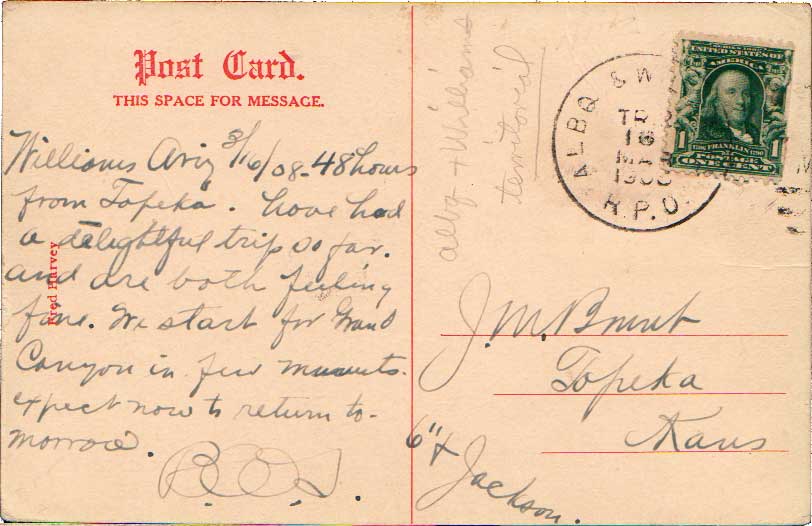 Post Card.
THIS SPACE FOR MESSAGE.
Williams Ariz 3/16/08-48 hours
from Topeka. have had
a delightful trip so far.
and are both feeling
fine. We start for Grand
Canyon in few
expect now to return to-
morrow.
Fred Harvey
alby + Williams
territorial
ALBQ & W
TR. 2
16
MAR
190
R.P.O.
SERIES 1902
UNITED STATES OF
AMERICA
1 FRANKLIN 1
POSTAGE
ONE CENT
J. M. Brunt
Topeka
Kans
6" &
Jackson.